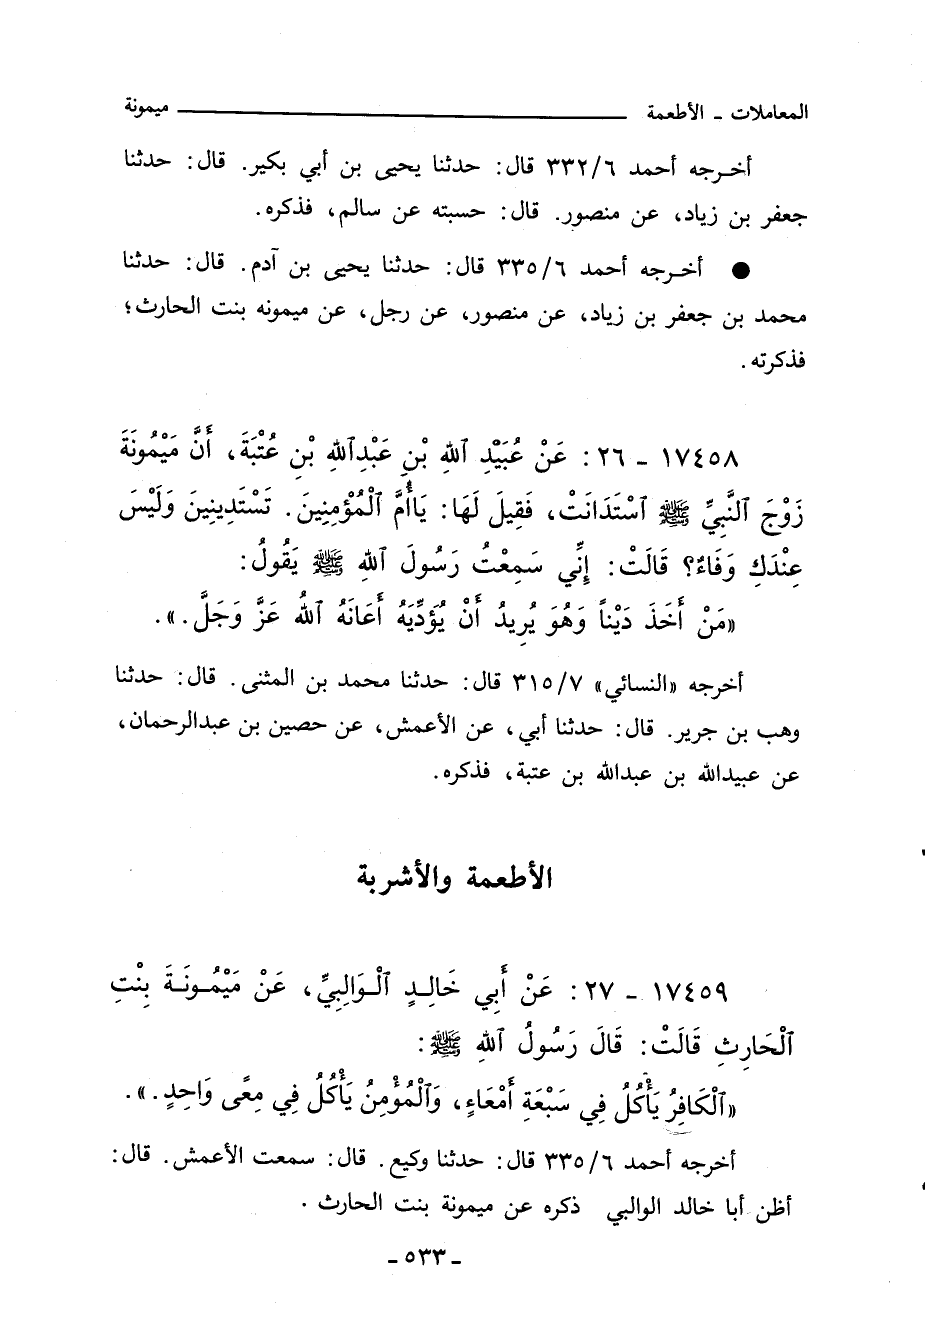 المعاملات - الأطعمة ميمونة
أخرجه أحمد ٣٣٢/٦ قال: حدثنا يحيى بن أبي بكير. قال: حدثنا
جعفر بن زياد، عن منصور. قال: حسبته عن سالم، فذكره.
● أخرجه أحمد ٣٣٥/٦ قال: حدثنا يحيى بن آدم. قال: حدثنا
محمد بن جعفر بن زياد، عن منصور، عن رجل، عن ميمونه بنت الحارث؛
فذكرته.
١٧٤٥٨ - ٢٦: عَنْ عُبَيْدِ ٱللهِ بْنِ عَبْدِٱللهِ بْنِ عُتْبَةَ، أَنَّ مَيْمُونَةَ
زَوْجَ ٱلنَّبِيِّ ﷺ ٱسْتَدَانَتْ، فَقِيلَ لَهَا: يَاأُمَّ ٱلْمُؤْمِنِينَ. تَسْتَدِينِينَ وَلَيْسَ
عِنْدَكِ وَفَاءٌ؟ قَالَتْ: إِنِّي سَمِعْتُ رَسُولَ ٱللهِ ﷺ يَقُولُ:
«مَنْ أَخَذَ دَيْناً وَهُوَ يُرِيدُ أَنْ يُؤَدِّيَهُ أَعَانَهُ ٱللهُ عَزَّ وَجَلَّ.».
أخرجه «النسائي» ٣١٥/٧ قال: حدثنا محمد بن المثنى. قال: حدثنا
وهب بن جرير. قال: حدثنا أبي، عن الأعمش، عن حصين بن عبدالرحمان،
عن عبيدالله بن عبدالله بن عتبة، فذكره.
الأطعمة والأشربة
١٧٤٥٩ - ٢٧: عَنْ أَبِي خَالِدٍ ٱلْوَالِبِيِّ، عَنْ مَيْمُونَةَ بِنْتِ
ٱلْحَارِثِ قَالَتْ: قَالَ رَسُولُ ٱللهِ ﷺ:
«ٱلْكَافِرُ يَأْكُلُ فِي سَبْعَةِ أَمْعَاءٍ، وَٱلْمُؤْمِنُ يَأْكُلُ فِي مِعًى وَاحِدٍ.».
أخرجه أحمد ٣٣٥/٦ قال: حدثنا وكيع. قال: سمعت الأعمش. قال:
أظن أبا خالد الوالبي ذكره عن ميمونة بنت الحارث.
- ٥٣٣ -